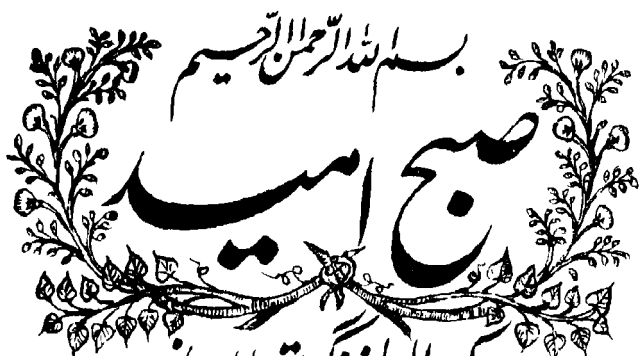 بسم الله الرحمن الرحیم
صبح امید